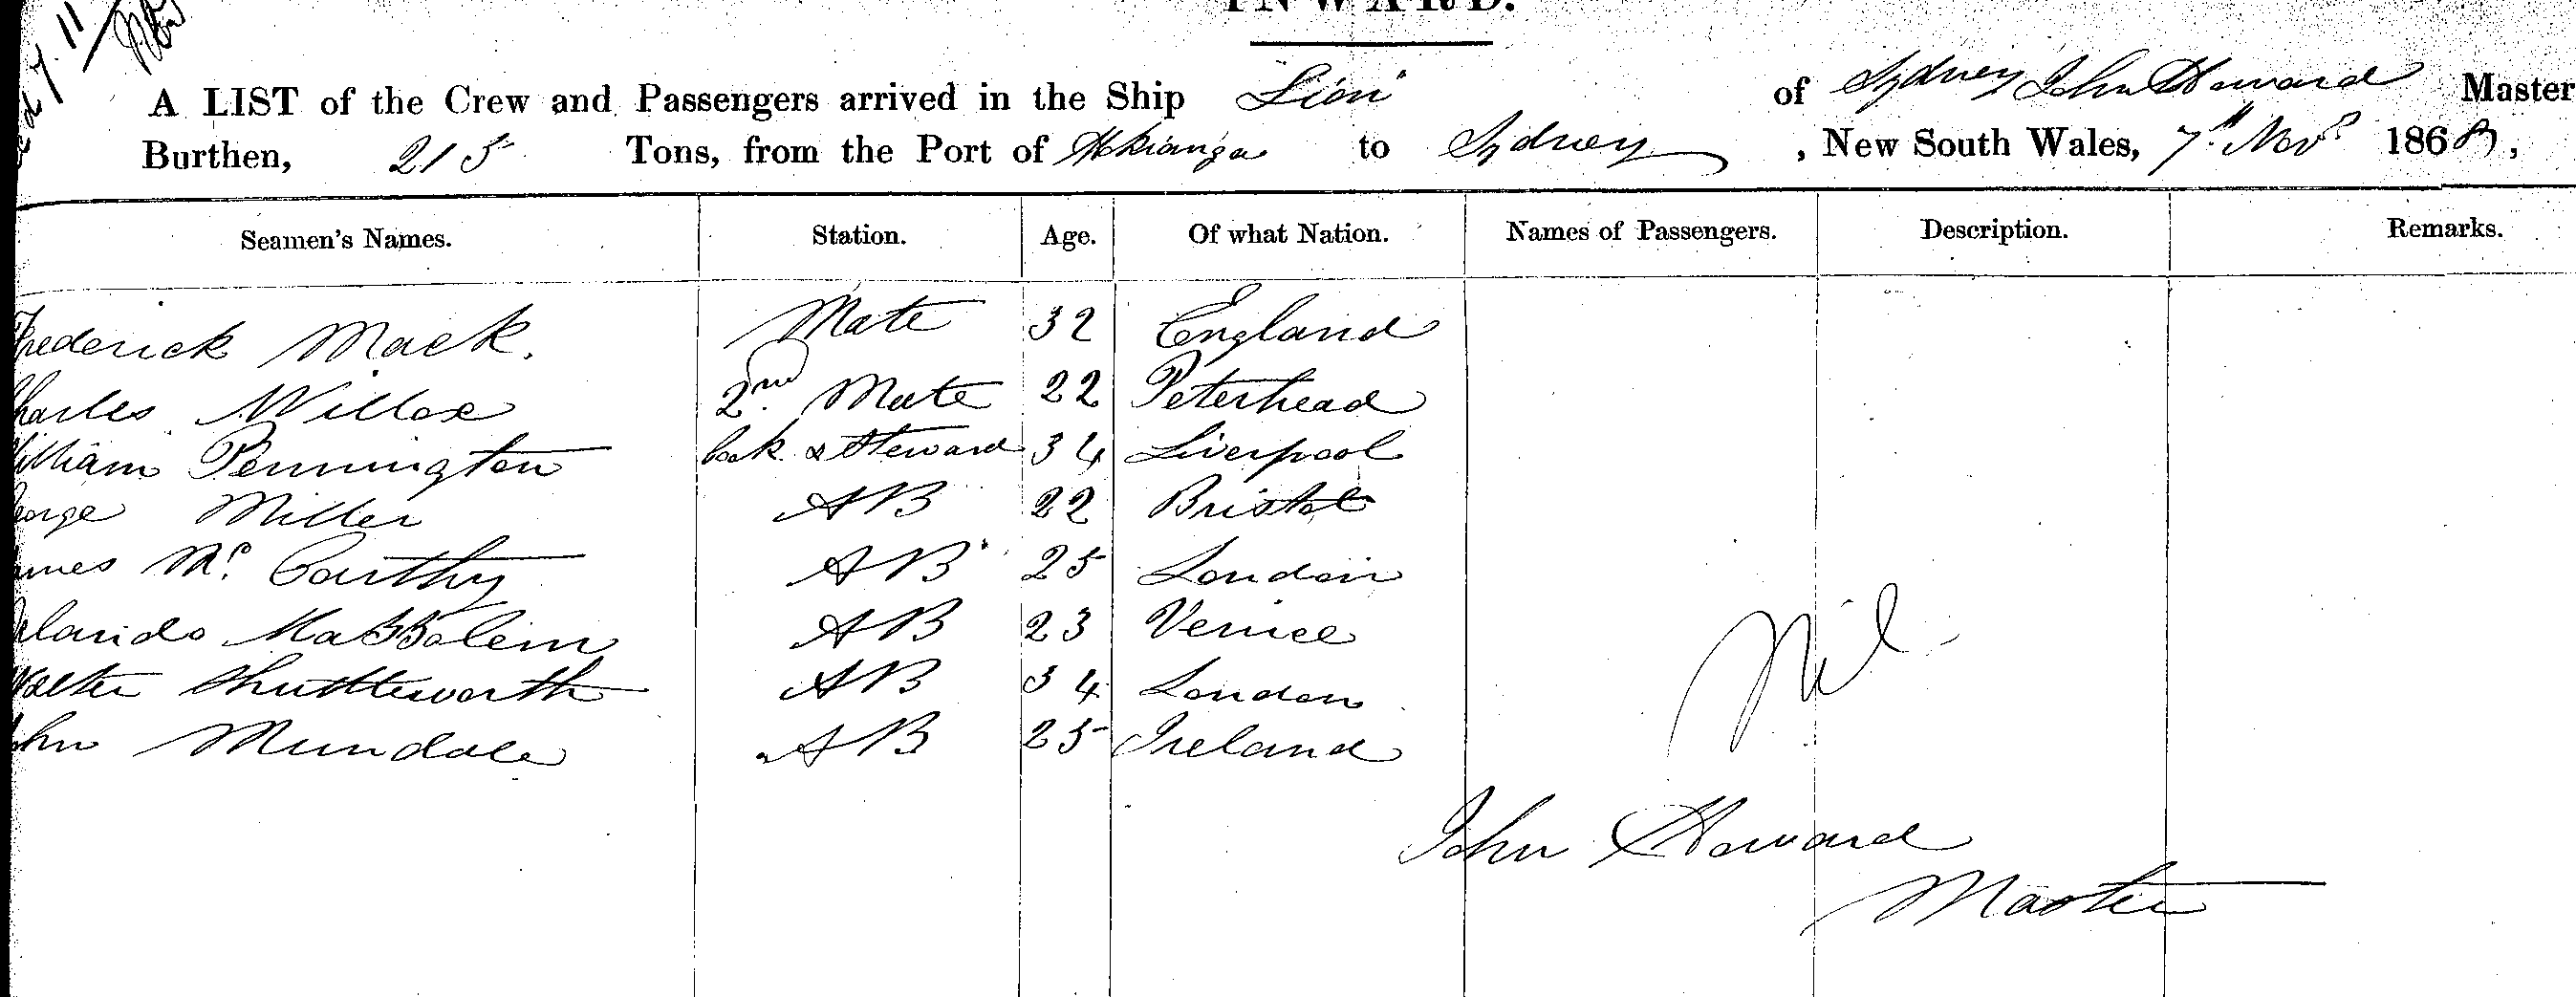 INWARD.
A LIST of the Crew and Passengers arrived in the Ship Lion of Sydney John Howard Master
Burthen, 215 Tons, from the Port of Hokianga to Sydney, New South Wales, 7th Novr 1868,
Seamen's Names. Station. Age. Of what Nation. Names of Passengers. Description. Remarks.
Frederick Mack. Mate 32 England
Charles Willox 2nd Mate 22 Peterhead
William Pennington Cook & Steward 34 Liverpool
George Miller AB 22 Bristol
James Mc Carthy AB 25 London
AB 23 Venice
Walter Shuttleworth AB 34 London
Nil
John Mundale AB 25 Ireland
John Howard
Master